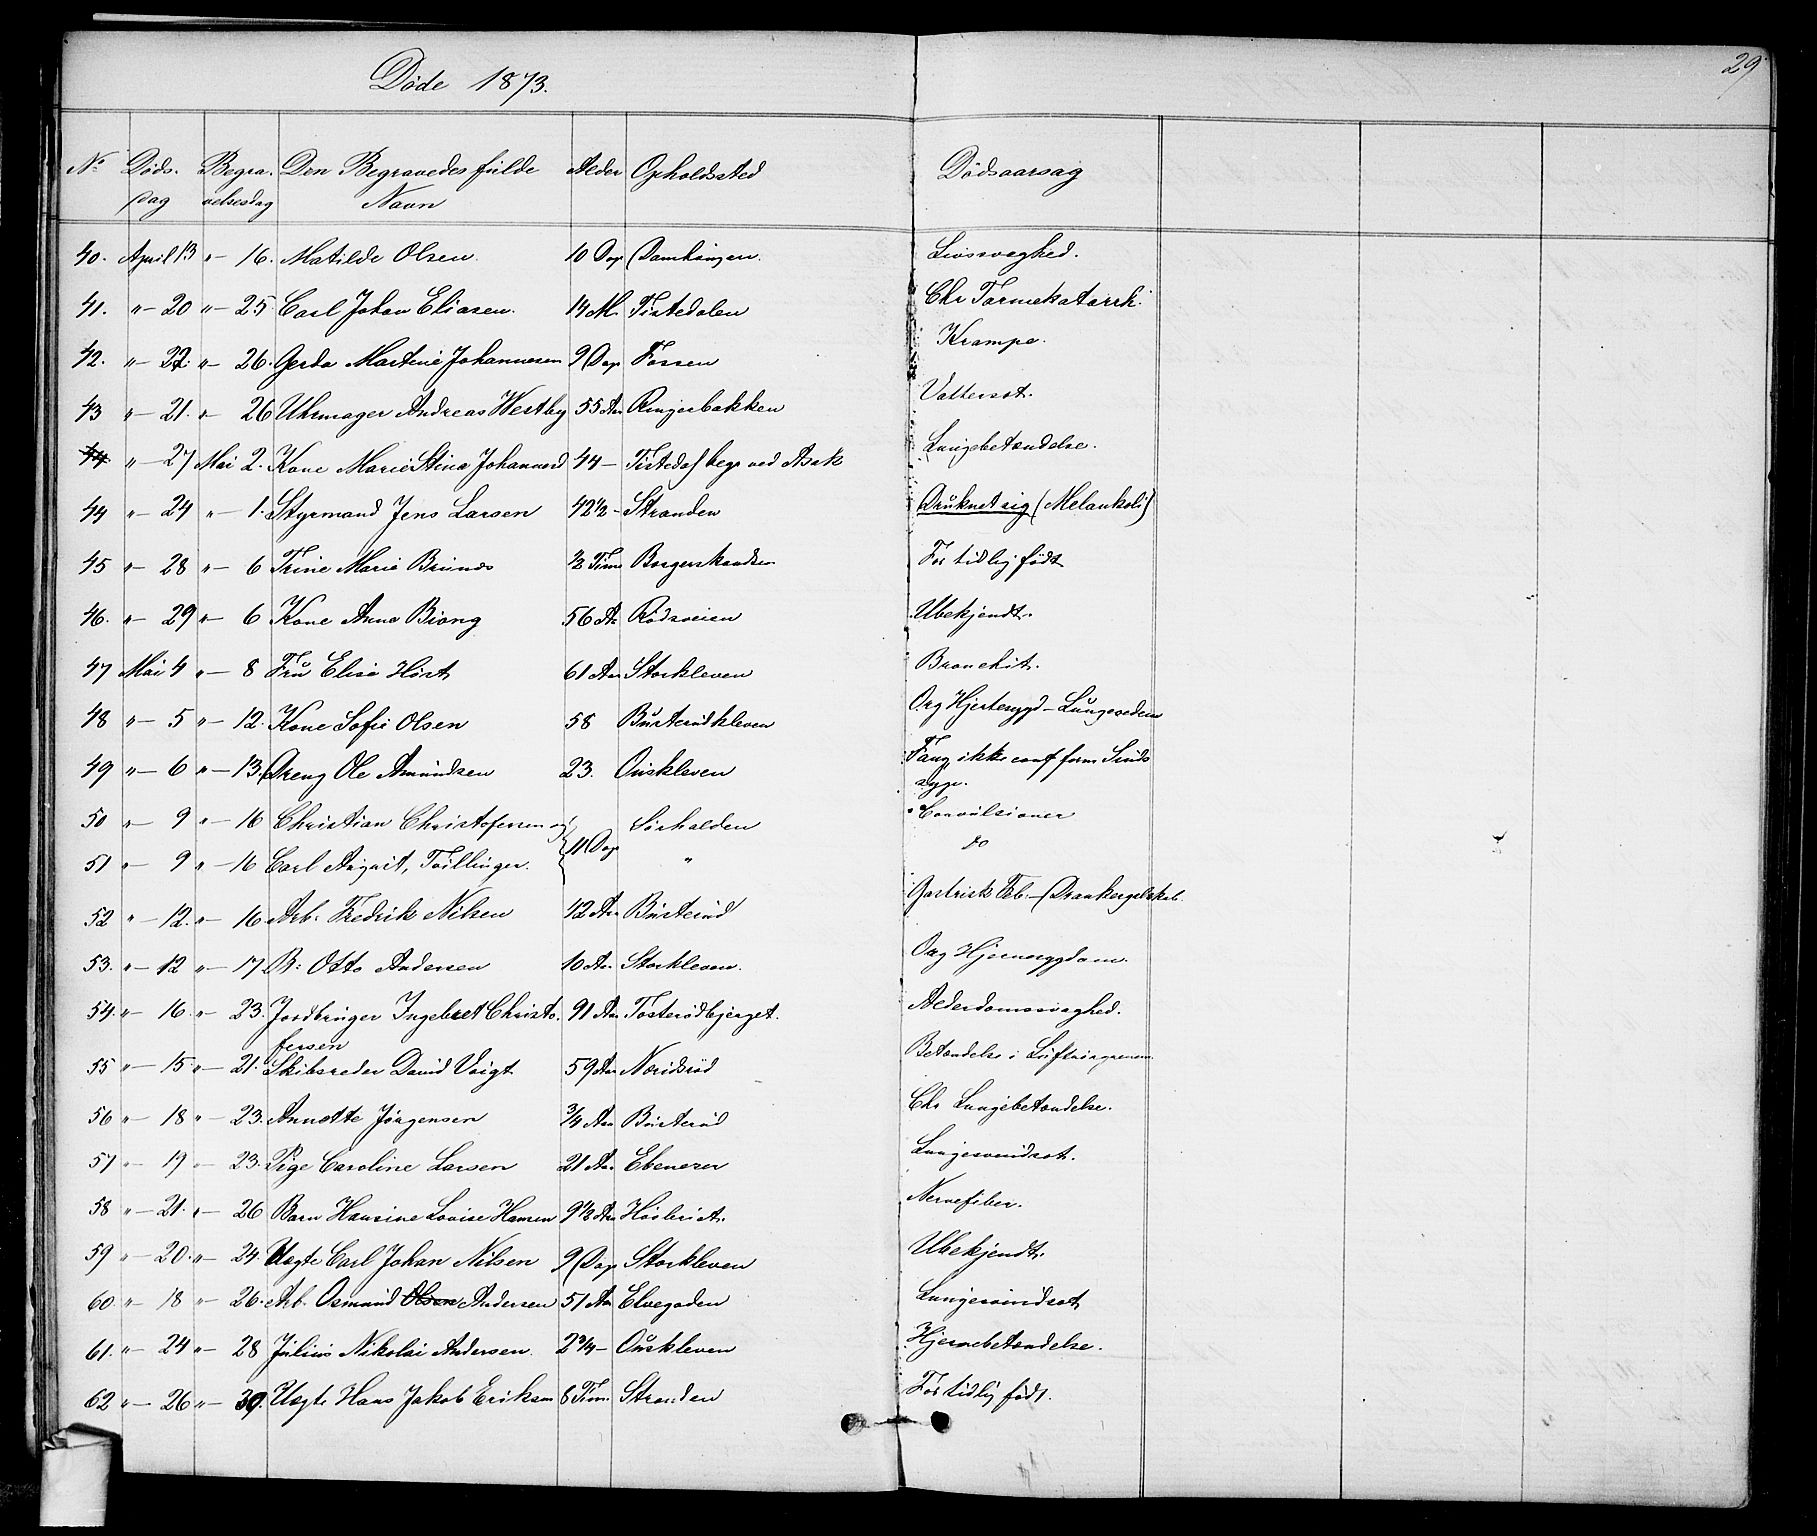 29
Døde 1873.
No Døds- dag Begra- velsesdag Den Begravedes fulde Navn Alder Opholdssted Dødsaarsag
40. April 13 " — 16. Matilde Olsen. 10 Dag Damhaugen. Livssvaghed.
41. " — 20 " — 25. Carl Johan Eliasen. 14 M. Tistedalen Chr Tarmekatarrh.
42. " — 22. " — 26. Gerda Martine Johannesen 9 Dag Fossen Krampe.
43 " — 21. " 26 Uhrmager Andreas Westby 55 Aar Ringerbakken Vattersot.
44 " — 27 Mai 2. Kone Marie Stina Johannesd 44 — Tistedal begr ved Asak Lungebetændelse.
44 " — 24 " — 1. Styrmand Jens Larsen 42 1/2 — Stranden Druknet sig (Melankoli)
45 " — 28 " — 6 Trine Marie Brunæs 1/2 Time Borgerskandsen For tidlig født
46. " — 29 " — 6 Kone Anna Biong 56 Aar Rødsveien Ubekjendt.
47 Mai 4 " — 8 Fru Elise Høst 61 Aar Storkleven Bronchit.
48 " — 5 " — 12. Kone Sofie Olsen 58 Busterudkleven Org Hjertesygd — Lungeoedem
49 " — 6 " — 13. Dreng Ole Amundsen 23. Ouskleven Fang, ikke conf form Sinds
syge.
50 " — 9 " — 16 Christian Christofersen og } 11 Dag Sørhalden Convulsioner
51 " — 9 " — 16 Carl August, Tvillinger. " do
52 " — 12. " — 16 Arb. Fredrik Nilsen 42 Aar Busterud Gastrisk Feb. — Drankergalskab.
53. " — 12 " — 17 B: Otto Andersen 10 Aar Storkleven. Org Hjernesygdom.
54. " — 16. " — 23. Jordbruger Ingebret Christo- 91 Aar Tosterødbjerget. Alderdomssvaghed.
fersen
55 " — 15 " — 21. Skibsreder David Voigt 59 Aar Næridsrød Betændelse i Luftrørgrenene
56 " — 18 " — 23. Annette Jørgensen 3/4 Aar Busterud Chr Lungebetændelse.
57 " — 19 " — 23. Pige Caroline Larsen 21 Aar Ebenezer Lungesvindsot.
58 " — 21. " — 26 Barn Hansine Lovise Hansen 9 1/2 Aar Høsbriet. Nervefeber.
59 " — 20. " — 24. Uægte Carl Johan Nilsen 9 Dag Storkleven Ubekjendt.
60 " — 18 " — 26. Arb. Osmund Olsen Andersen 51 Aar Elvegaden Lungesvindsot
61. " — 24 " — 28 Julius Nikolai Andersen. 2 3/4 — Ouskleven Hjernebetændelse.
62 " — 26 " — 30. Uægte Hans Jakob Eriksen 8 Tim. Stranden For tidlig født.